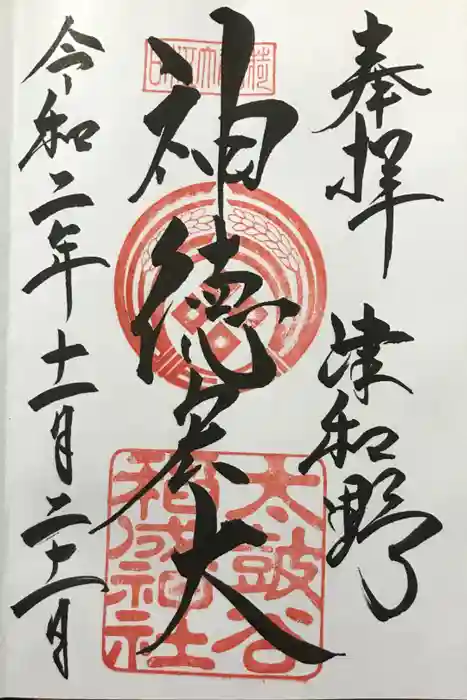 奉拝 津和野
神徳宏大
太鼓谷
稲成神社
令和二年十一月二十一日